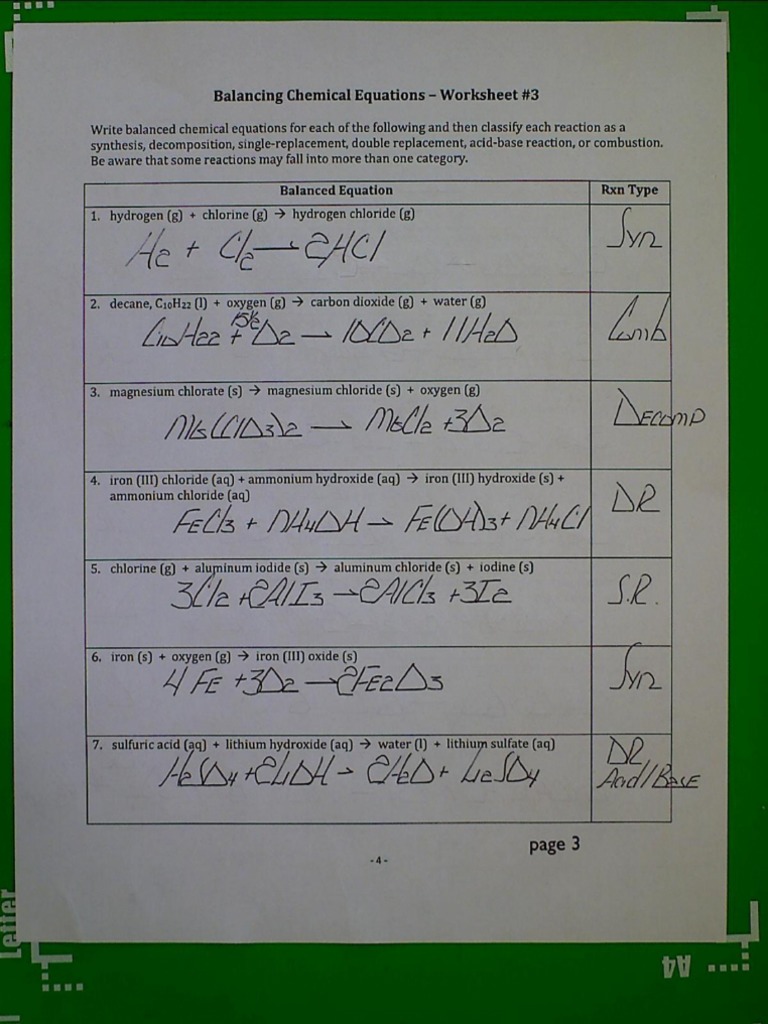 Balancing Chemical Equations – Worksheet #3
Write balanced chemical equations for each of the following and then classify each reaction as a
synthesis, decomposition, single-replacement, double replacement, acid-base reaction, or combustion.
Be aware that some reactions may fall into more than one category.
Balanced Equation Rxn Type
1. hydrogen (g) + chlorine (g) → hydrogen chloride (g)
H2 + Cl2 → 2HCl Syn
2. decane, C10H22 (l) + oxygen (g) → carbon dioxide (g) + water (g)
C10H22 + 15½O2 → 10CO2 + 11H2O Comb
3. magnesium chlorate (s) → magnesium chloride (s) + oxygen (g)
Mg(ClO3)2 → MgCl2 + 3O2 Decomp
4. iron (III) chloride (aq) + ammonium hydroxide (aq) → iron (III) hydroxide (s) +
ammonium chloride (aq)
FeCl3 + NH4OH → Fe(OH)3 + NH4Cl DR
5. chlorine (g) + aluminum iodide (s) → aluminum chloride (s) + iodine (s)
3Cl2 + 2AlI3 → 2AlCl3 + 3I2 S.R.
6. iron (s) + oxygen (g) → iron (III) oxide (s)
4Fe + 3O2 → 2Fe2O3 Syn
7. sulfuric acid (aq) + lithium hydroxide (aq) → water (l) + lithium sulfate (aq)
H2SO4 + 2LiOH → 2H2O + Li2SO4 DR
Acid/Base
page 3
- 4 -
Letter
A4